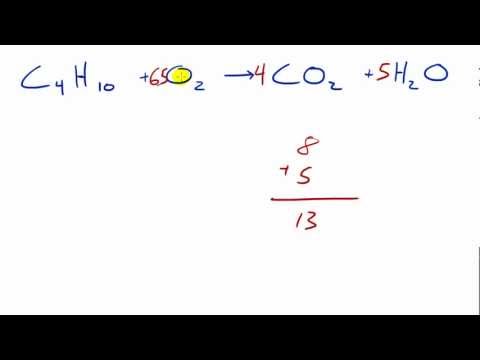 C₄H₁₀ + 6.5O₂ → 4CO₂ + 5H₂O
8
+ 5
13